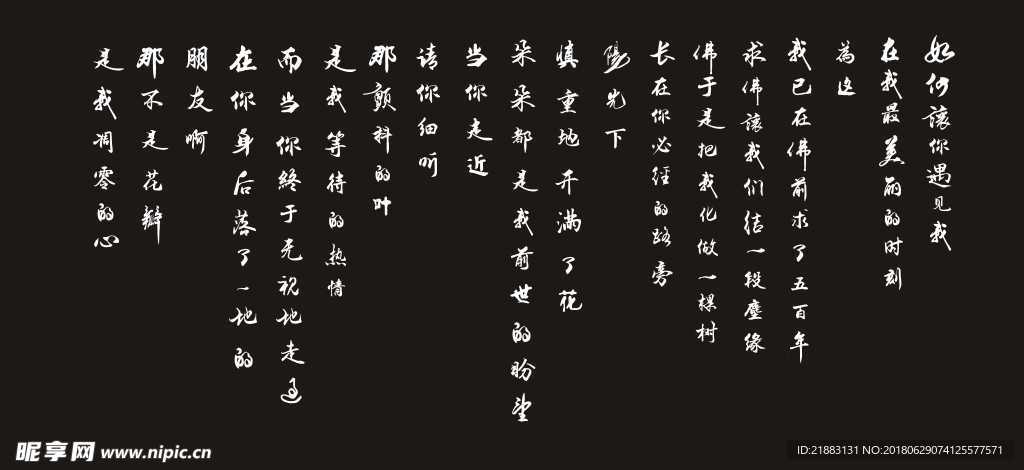 如何讓你遇见我
在我最美丽的时刻
為这
我已在佛前求了五百年
求佛讓我们结一段塵缘
佛于是把我化做一棵树
长在你必经的路旁
陽光下
慎重地开满了花
朵朵都是我前世的盼望
当你走近
请你细听
那颤抖的叶
是我等待的热情
而当你終于无视地走过
在你身后落了一地的
朋友啊
那不是花瓣
是我凋零的心
昵享网 www.nipic.cn
ID:21883131 NO:20180629074125577571